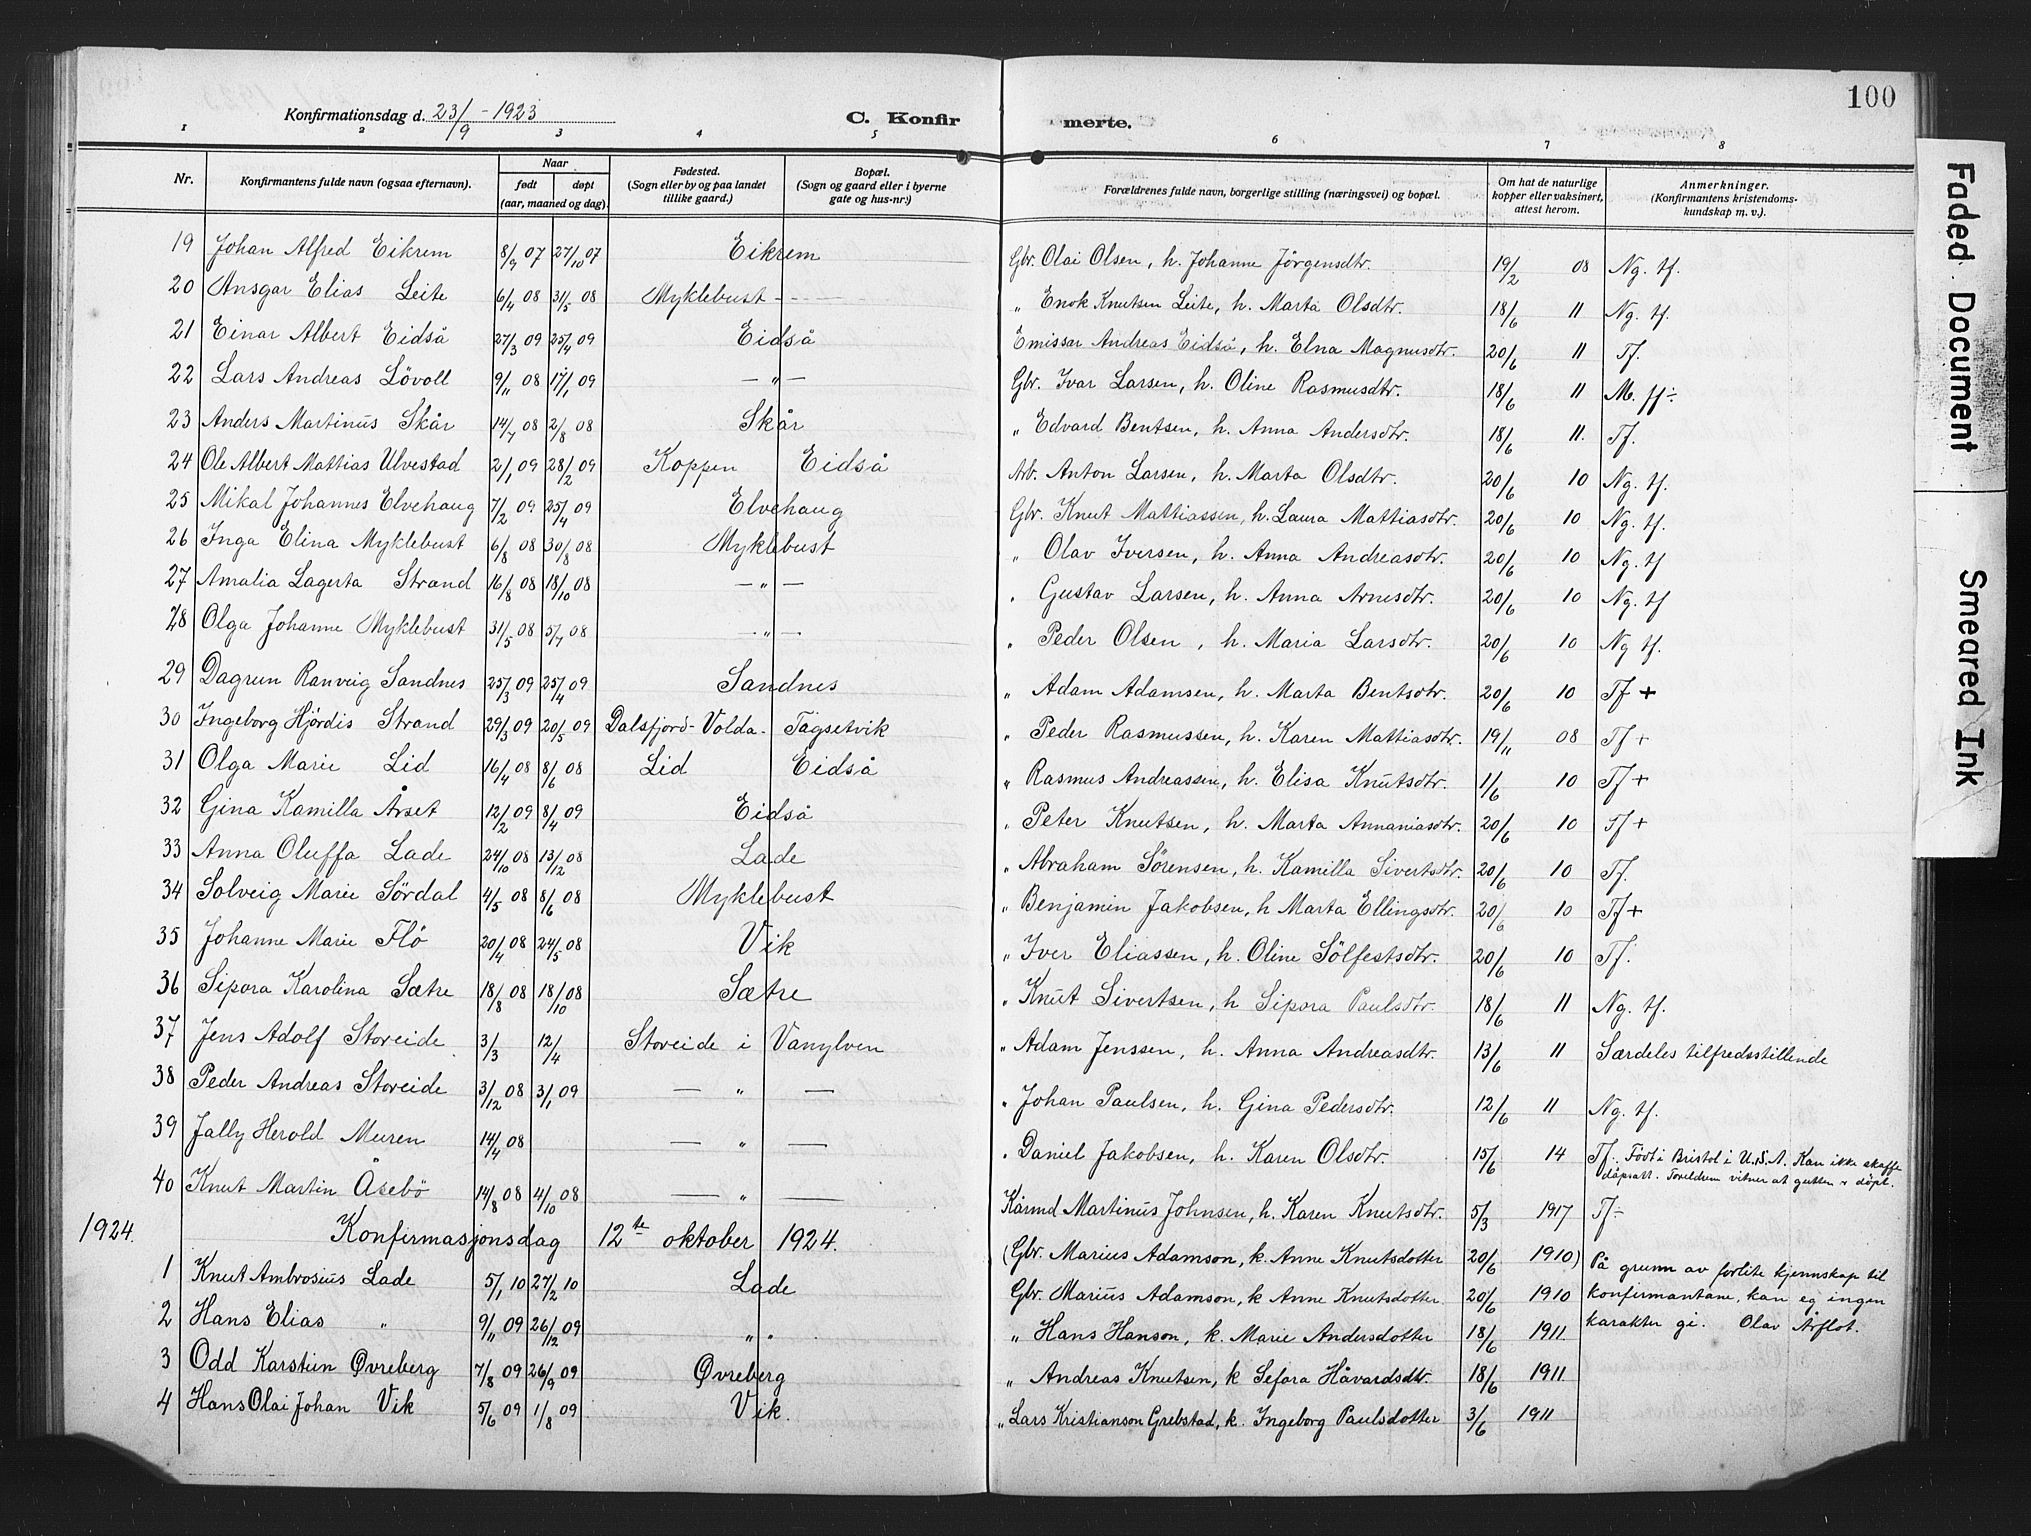 100
Konfirmationsdag d. 23/9 - 1923
C. Konfirmerte.
1 2 3 4 5 6 7 8
Nr.
Konfirmantens fulde navn (ogsaa efternavn).
Naar
født døpt
(aar, maaned og dag).
Fødested.
(Sogn eller by og paa landet
tillike gaard.)
Bopæl.
(Sogn og gaard eller i byerne
gate og hus-nr.)
Forældrenes fulde navn, borgerlige stilling (næringsvei) og bopæl.
Om hat de naturlige
kopper eller vaksinert,
attest herom.
Anmerkninger.
(Konfirmantens kristendoms-
kundskap m. v.).
19 Johan Alfred Eikrem 8/9 07 27/10 07 Eikrem Gbr. Olai Olsen, h. Johanne Jörgensdtr. 19/2 08 Ng. tf.
20 Ansgar Elias Leite 6/4 08 31/5 08 Myklebust - - - „ Enok Knutsen Leite, h. Marta Olsdtr. 18/6 11 Ng. tf.
21 Einar Albert Eidså 27/3 09 25/4 09 Eidså Emissar Andreas Eidså, h. Elna Magnusdtr. 20/6 11 Tf.
22 Lars Andreas Lövoll 9/11 08 17/1 09 — „ — Gbr. Ivar Larsen, h. Oline Rasmusdtr. 18/6 11 M. ff ÷
23 Anders Martinus Skår 14/7 08 2/8 08 Skår „ Edvard Bentsen, h. Anna Andersdtr. 18/6 11. Tf.
24 Ole Albert Mattias Ulvestad 2/1 09 28/2 09 Koppen Eidså Arb. Anton Larsen, h. Marta Olsdtr. 20/6 10 Ng. tf.
25 Mikal Johannes Elvehaug 7/2 09 25/4 09 Elvehaug Gbr. Knut Mattiassen, h. Laura Mattiasdtr. 20/6 10 Ng. tf.
26 Inga Elina Myklebust 6/8 08 30/8 08 Myklebust „ Olav Iversen, h. Anna Andreasdtr. 20/6 10 Ng. tf
27 Amalia Lagerta Strand 16/8 08 18/10 08 — „ — „ Gustav Larsen, h. Anna Arnesdtr. 20/6 10 Ng. tf
28 Olga Johanne Myklebust 31/5 08 5/7 08 — „ — „ Peder Olsen, h. Maria Larsdtr. 20/6 10 Ng tf.
29 Dagrun Ranveig Sandnes 25/3 09 25/4 09 Sandnes „ Adam Adamsen, h. Marta Bentsdtr. 20/6 10 Tf +
30 Ingeborg Hjördis Strand 29/3 09 20/5 09 Dalsfjord - Volda. Tågsetvik „ Peder Rasmussen, h. Karen Mattiasdtr. 19/11 08 Tf +
31 Olga Marie Lid 16/4 08 8/6 08 Lid Eidså „ Rasmus Andreassen, h. Elisa Knutsdtr. 1/6 10 Tf +
32 Gina Kamilla Årset 12/2 09 8/4 09 Eidså „ Peter Knutsen, h. Marta Annaniasdtr. 20/6 10 Tf +
33 Anna Oluffa Lade 24/10 08 13/12 08 Lade „ Abraham Sörensen, h. Kamilla Sivertsdtr. 20/6 10 Tf.
34 Solveig Marie Sördal 4/5 08 8/6 08 Myklebust „ Benjamin Jakobsen, h Marta Ellingsdtr. 20/6 10 Tf +
35 Johanne Marie Flö 20/4 08 24/5 08 Vik „ Iver Eliassen, h. Oline Sölfestsdtr. 20/6 10 Tf.
36 Sipora Karolina Sætre 18/8 08 18/10 08 Sætre „ Knut Sivertsen, h Sipora Paulsdtr. 18/6 11 Ng. tf.
37 Jens Adolf Storeide 3/3 12/4 Storeide i Vanylven „ Adam Jenssen, h. Anna Andreasdtr. 13/6 11 Særdeles tilfredsstillende
38 Peder Andreas Storeide 3/12 08 3/1 09 — „ — „ Johan Paulsen, h. Gina Pedersdtr. 12/6 11 Ng. tf.
39 Jally Herold Muren 14/4 08 — „ — „ Daniel Jakobsen, h. Karen Olsdtr. 15/6 14 Tf. Födt i Bristol i U.S.A. Kan ikke skaffe
dåpsatt. Foreldrene vitner at gutten er döpt.
40 Knut Martin Åsebö 14/8 08 4/10 08 — „ — Kårmd Martinus Johnsen, h. Karen Knutsdtr. 5/3 1917 Tf -
1924. Konfirmasjonsdag 12te oktober 1924. (Gbr. Marius Adamson, k. Anne Knutsdotter 20/6 1910)
1 Knut Ambrosius Lade 5/1 10 27/2 10 Lade Gbr. Marius Adamson, k Anne Knutsdotter 20/6 1910
2 Hans Elias „ 9/11 09 26/12 09 „ „ „ Hans Hanson, k. Marie Andersdotter 18/6 1911
På grunn av forlite kjennskap til
konfirmantane, kan eg ingen
karakter gi. Olav Årflot.
3 Odd Karstein Øvreberg 7/8 09 26/9 09 Øvreberg „ Andreas Knutsen, k Sefora Håvardsdtr. 18/6 1911
4 Hans Olai Johan Vik 5/6 09 1/8 09 Vik. „ Lars Kristianson Grebstad, k. Ingeborg Paulsdotter 3/6 1911
Faded Document
Smeared Ink